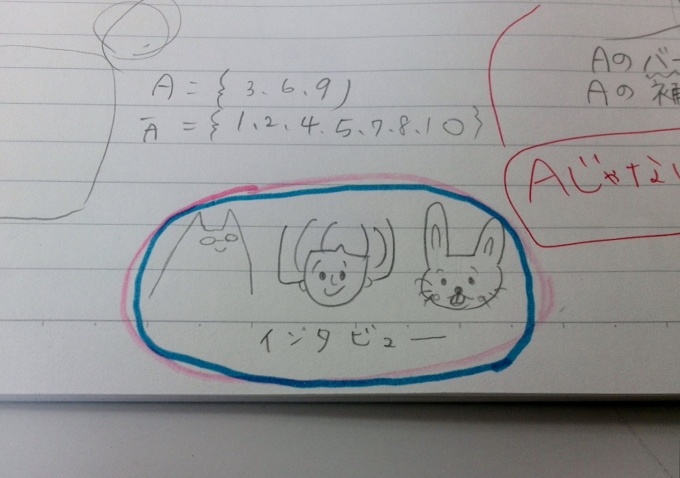 A = { 3、6、9 )
A̅ = { 1、2、4、5、7、8、10 }
Aのバー
Aの補
Aじゃない
インタビュー